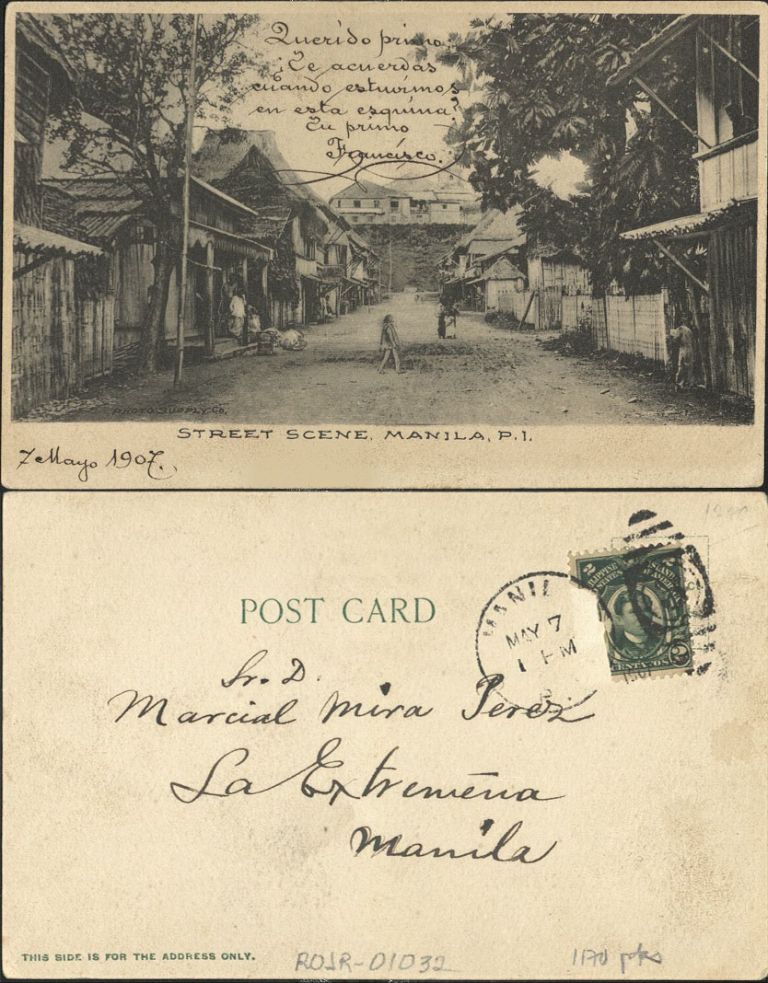 Querido primo:
¿Te acuerdas
cuando estuvimos
en esta esquina?
Tu primo
Francisco.
PHOTO SUPPLY CO.
STREET SCENE, MANILA, P.I.
7 Mayo 1907.
POST CARD
MANIL
MAY 7
1 PM
P.
1907
2
2
PHILIPPINE ISLANDS
UNITED STATES OF AMERICA
CENTAVOS
Sr. D.
Marcial Mira Perez
La Extremeña
Manila
THIS SIDE IS FOR THE ADDRESS ONLY.
ROJR-01032